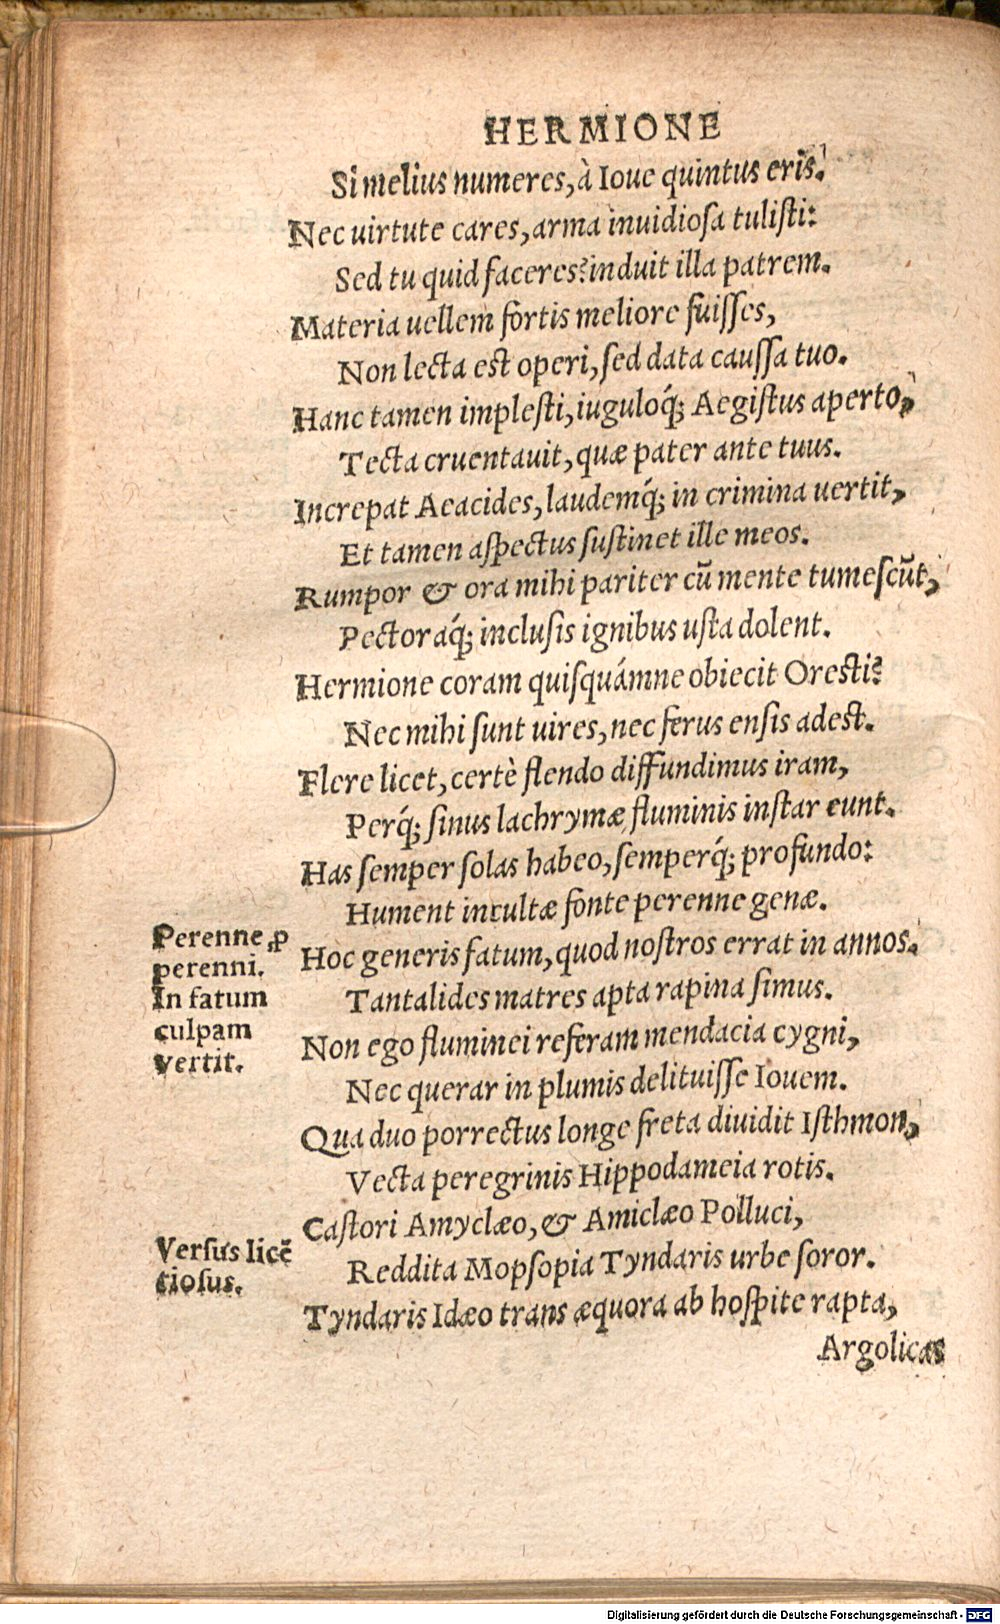 HERMIONE
Si melius numeres, à Ioue quintus eris.
Nec uirtute cares, arma inuidiosa tulisti:
Sed tu quid faceres? induit illa patrem.
Materia uellem fortis meliore fuiſſes,
Non lecta est operi, sed data cauſſa tuo.
Hanc tamen implesti, iuguloq́; Aegistus aperto,
Tecta cruentauit, quæ pater ante tuus.
Increpat Aeacides, laudemq́; in crimina uertit,
Et tamen aſpectus ſustinet ille meos.
Rumpor & ora mihi pariter cū mente tumeſcūt,
Pectoraq́; incluſis ignibus uſta dolent.
Hermione coram quiſquámne obiecit Oresti?
Nec mihi ſunt uires, nec ferus enſis adest.
Flere licet, certè flendo diffundimus iram,
Perq́; ſinus lachrymæ fluminis instar eunt.
Has ſemper ſolas habeo, ſemperq́; profundo:
Hument incultæ fonte perenne genæ.
Perenne ꝓ
perenni.
In fatum
culpam
vertit.
Hoc generis fatum, quod nostros errat in annos.
Tantalides matres apta rapina ſimus.
Non ego fluminei referam mendacia cygni,
Nec querar in plumis delituiſſe Iouem.
Qua duo porrectus longe freta diuidit Isthmon,
Vecta peregrinis Hippodameia rotis.
Castori Amyclæo, & Amiclæo Polluci,
Verſus licē
tioſus.
Reddita Mopſopia Tyndaris urbe ſoror.
Tyndaris Idæo trans æquora ab hoſpite rapta,
Argolicas
Digitalisierung gefördert durch die Deutsche Forschungsgemeinschaft - DFG